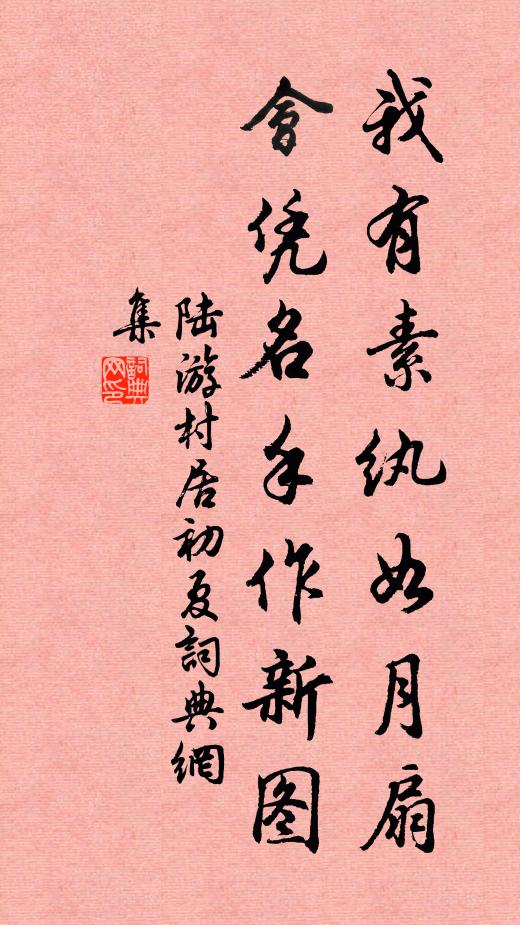 我有素纨如月扇
會凭名手作新图
陆游村居初夏詞典網
集
詞典网印